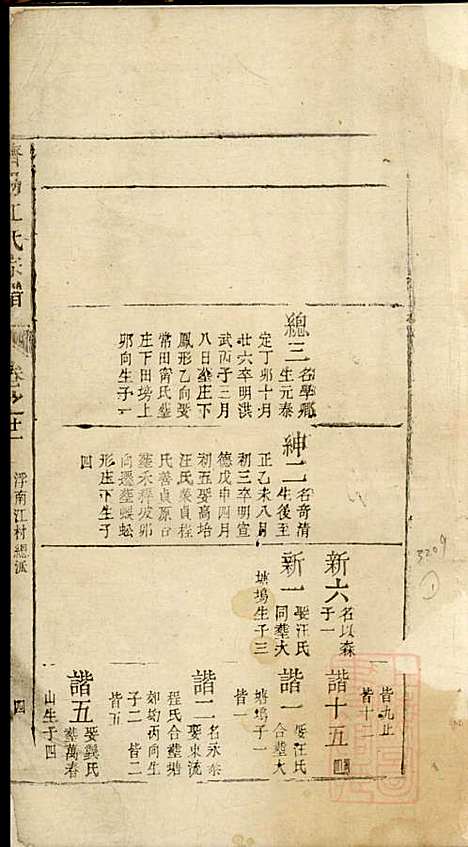 濟陽江氏宗譜
卷之廿一
浮南江村總派
四
總三
名學鄉
生元泰
定丁卯十月
廿六卒明洪
武丙子三月
八日塟庄下
鳳形乙向娶
常田甯氏塟
庄下田塝上
卯向生子一
紳二
名奇清
生後至
正乙未八月
初三卒明宣
德戊申四月
初五娶高培
汪氏
向遷塟蜈蚣
形庄下生子
四
新六
名以森
子一
新一
娶汪氏
同塟大
塘塢生子三
皆九止
皆十二
諧十五
諧一
娶汪氏
合塟大
塘塢子一
皆一
諧二
名永泰
娶東流
程氏合塟塘
丙向生
子二 皆二
皆五
諧五
娶龔氏
塟萬春
山生子四
3209
1